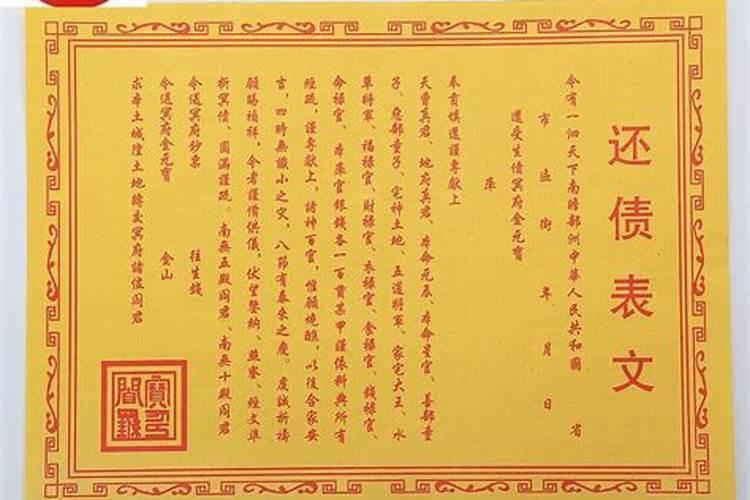 还债表文
今有一泗天下南瞻部洲中華人民共和國 省
市 區 街 年 月 日
還受生債冥府金元寶
庫
奉肓填還謹專献上
天曹真君、地府真君、本命元辰、本命星官、善部童
子、惡部童子、宅神土地、五道將軍、家宅大王、水
草將軍、福禄官、財禄官、衣禄官、食禄官、錢禄官、
命禄官、本庫官銀錢各一百貫某甲謹依科典所有
經疏，謹專献上，諸神百官，惟願燒醮，以後合家安
吉，四時無識小之灾，八節有泰來之慶。虔誠祈禱
願賜禎祥，令者謹備供儀，伏望鑒納、照察、經文準
折冥債、圆滿謹疏。南無五殿阎君、南無十殿阎君
令送冥府鈔票 往生錢
令送冥府金元寳 金山
求本土城隍土地轉交冥府諸位阎君